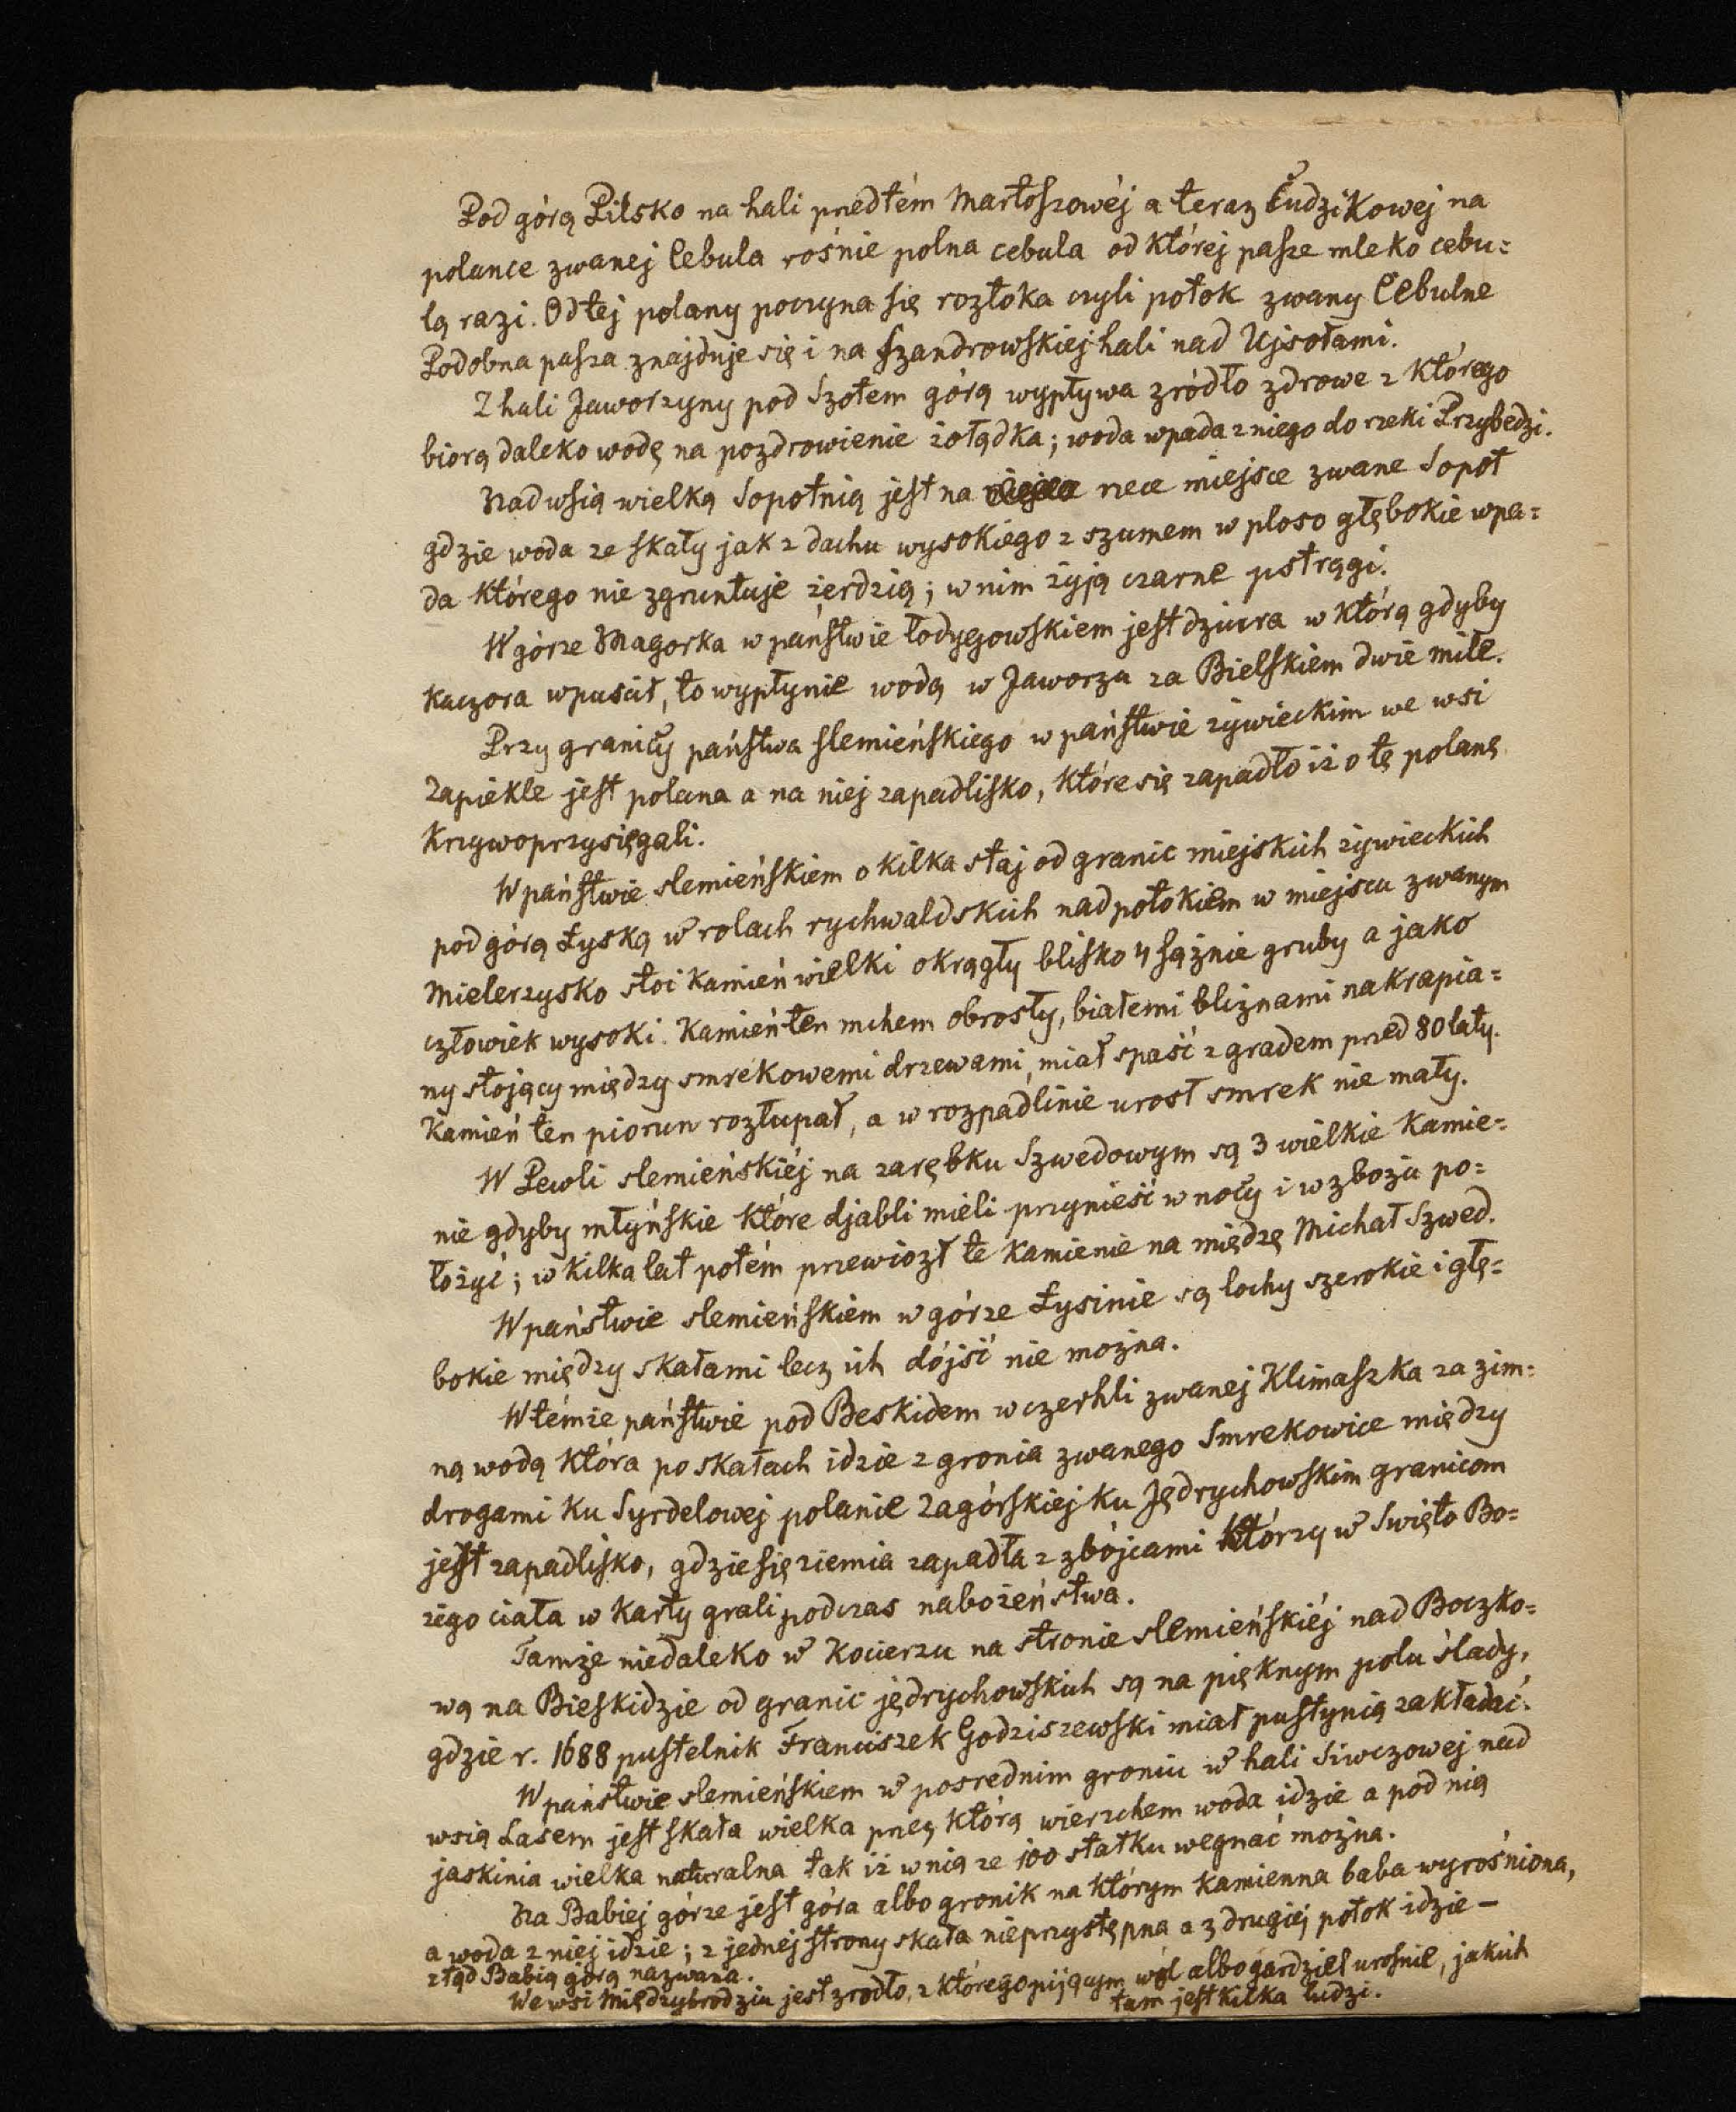 Pod górą Pilsko na hali przedtém Martoszowéj a teraz Cudzikowej na
polance zwanej Cebula rośnie polna cebula od której pasze mleko cebu=
lą razi. Od tej polany poczyna się roztoka czyli potok zwany Cebulne
Podobna pasza znajduje się i na Szandrowskiej hali nad Ujsołami.
Z hali Jaworzyny pod Szołem górą wypływa zródło zdrowe z którego
biorą daleko wodę na pozdrowienie żołądka; woda wpada z niego do rzeki Przybedzi.
Nad wsią wielką Sopotnią jest na rzece miejsce zwane Sopot
gdzie woda ze skały jak z dachu wysokiego z szumem w ploso głębokie wpa=
da którego nie zgruntuje żerdzią; w nim żyją czarne pstrągi.
W górze Magorka w państwie łodygowskiem jest dziura w którą gdyby
kaczora wpuścił, to wypłynie wodą w Jaworzu za Bielskiem dwie mile.
Przy granicy państwa slemieńskiego w państwie żywieckim we wsi
Zapiekle jest polana a na niej zapadlisko, które się zapadło iż o tę polanę
krzywoprzysięgali.
W państwie slemieńskiem o kilka staj od granic miejskich żywieckich
pod górą Łyską w rolach rychwaldskich nad potokiem w miejscu zwanym
Mielerzysko stoi kamień wielki okrągły blisko 4 sążnie gruby a jako
człowiek wysoki. Kamień ten mchem obrosły, białemi bliznami nakrapia=
ny stojący między smrekowemi drzewami, miał spaść z gradem przed 80 laty.
Kamień ten piorun rozłupał, a w rozpadlinie urosł smrek nie mały.
W Pewli slemieńskiéj na zarębku Szwedowym są 3 wielkie kamie=
nie gdyby młyńskie które djabli mieli przynieść w nocy i w zbożu po=
łożyć; w kilka lat potém przewiozł te kamienie na miedzę Michał Szwed.
W państwie slemieńskiem w górze Łysinie są lochy szerokie i głę=
bokie między skałami lecz ich dójść nie można.
W témże państwie pod Beskidem w czerhli zwanej Klimaszka za zim=
ną wodą która po skałach idzie z gronia zwanego Smrekowice między
drogami ku Syrdelowej polanie Zagórskiej ku Jędrychowskim granicom
jest zapadlisko, gdzie się ziemia zapadła z zbójcami którzy w Swięto Bo=
żego ciała w karty grali podczas nabożeństwa.
Tamże niedaleko w Kocierzu na stronie slemieńskiéj nad Boczko=
wą na Bieskidzie od granic jędrychowskich są na pięknym polu ślady,
gdzie r. 1688 pustelnik Franciszek Godziszewski miał pustynią zakładać.
W państwie slemieńskiem w posrednim groniu w hali Siwczowej nad
wsią Lasem jest skała wielka przez którą wierzchem woda idzie a pod nią
jaskinia wielka naturalna tak iż w nią ze 100 statku wegnać można.
Na Babiej górze jest góra albo gronik na którym kamienna baba wyrośniona,
a woda z niej idzie; z jednej strony skała nieprzystępna a z drugiej potok idzie –
ztąd Babią górą nazwana.
We wsi Międzybrodziu jest zrodło, z którego pijącym wól albo gardziel urośnie, jakich
tam jest kilka ludzi.